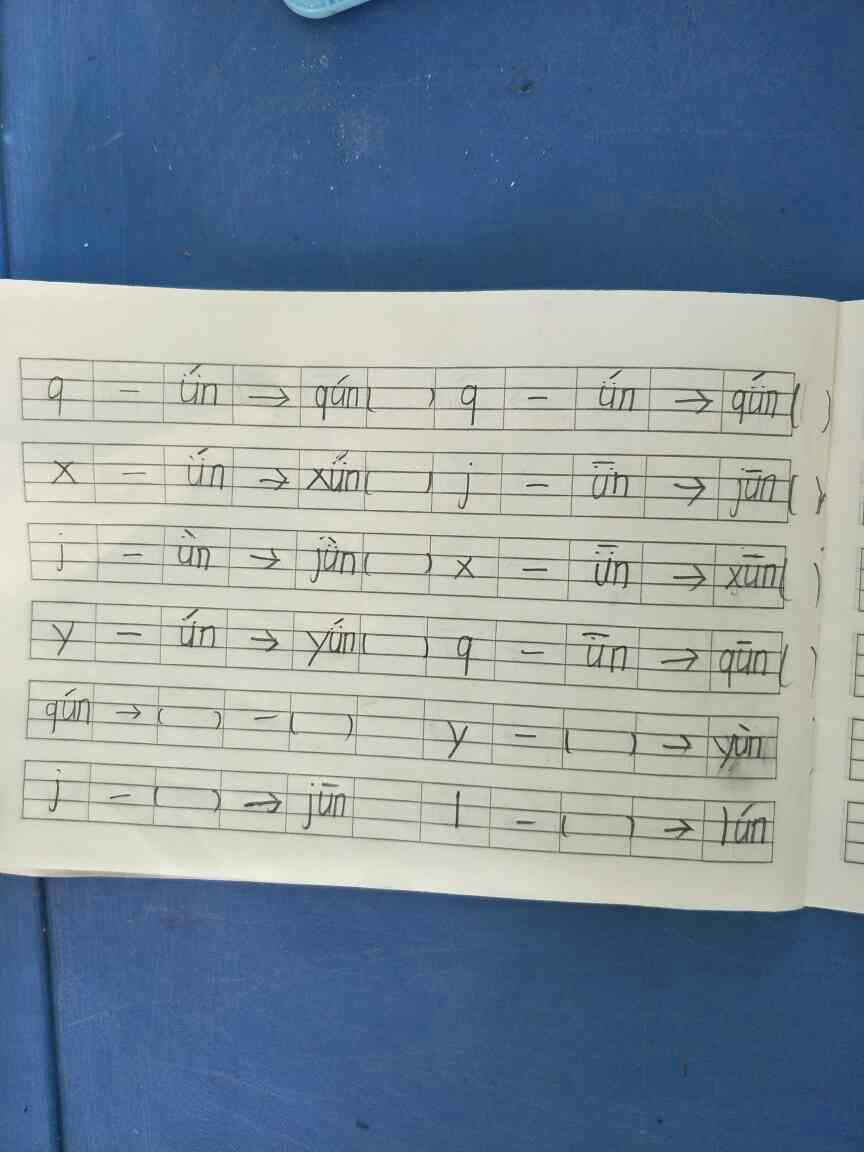 q － ǘn → qún( ) q － ǘn → qǘn( )
x － ǘn → xǘn( ) j － ǖn → jūn( )
j － ǜn → jǜn( ) x － ǖn → xūn( )
y － ǘn → yǘn( ) q － ǖn → qūn( )
qún → ( ) － ( ) y － ( ) → yùn
j － ( ) → jūn l － ( ) → lún